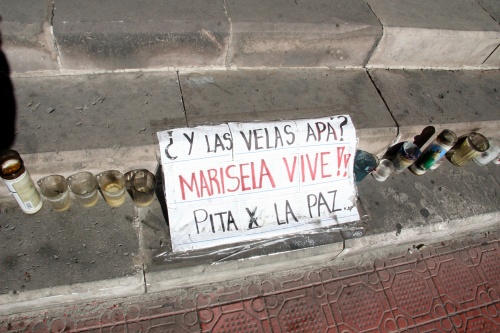 ¿Y LAS VELAS APÁ?
MARISELA VIVE!!
PITA X LA PAZ...